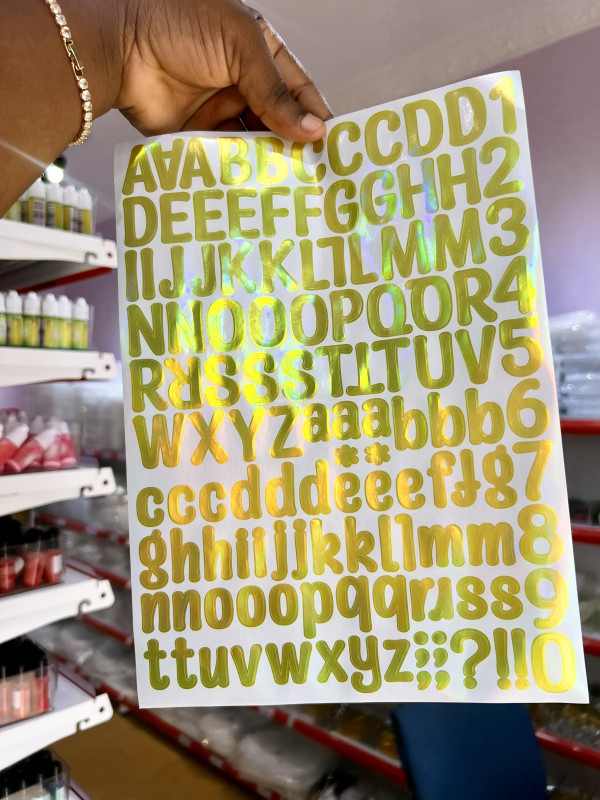 AAABBCCCDD1
DEEEFFGGHH2
IIJJKKLLMM3
NNOOOPQORR4
RRSSSTTTUV5
WXYZaaabbb6
cccdddeeeffg7
ghhiijjkkllmm8
nnooopqqrrsss9
ttuvwxyz;;?!!0